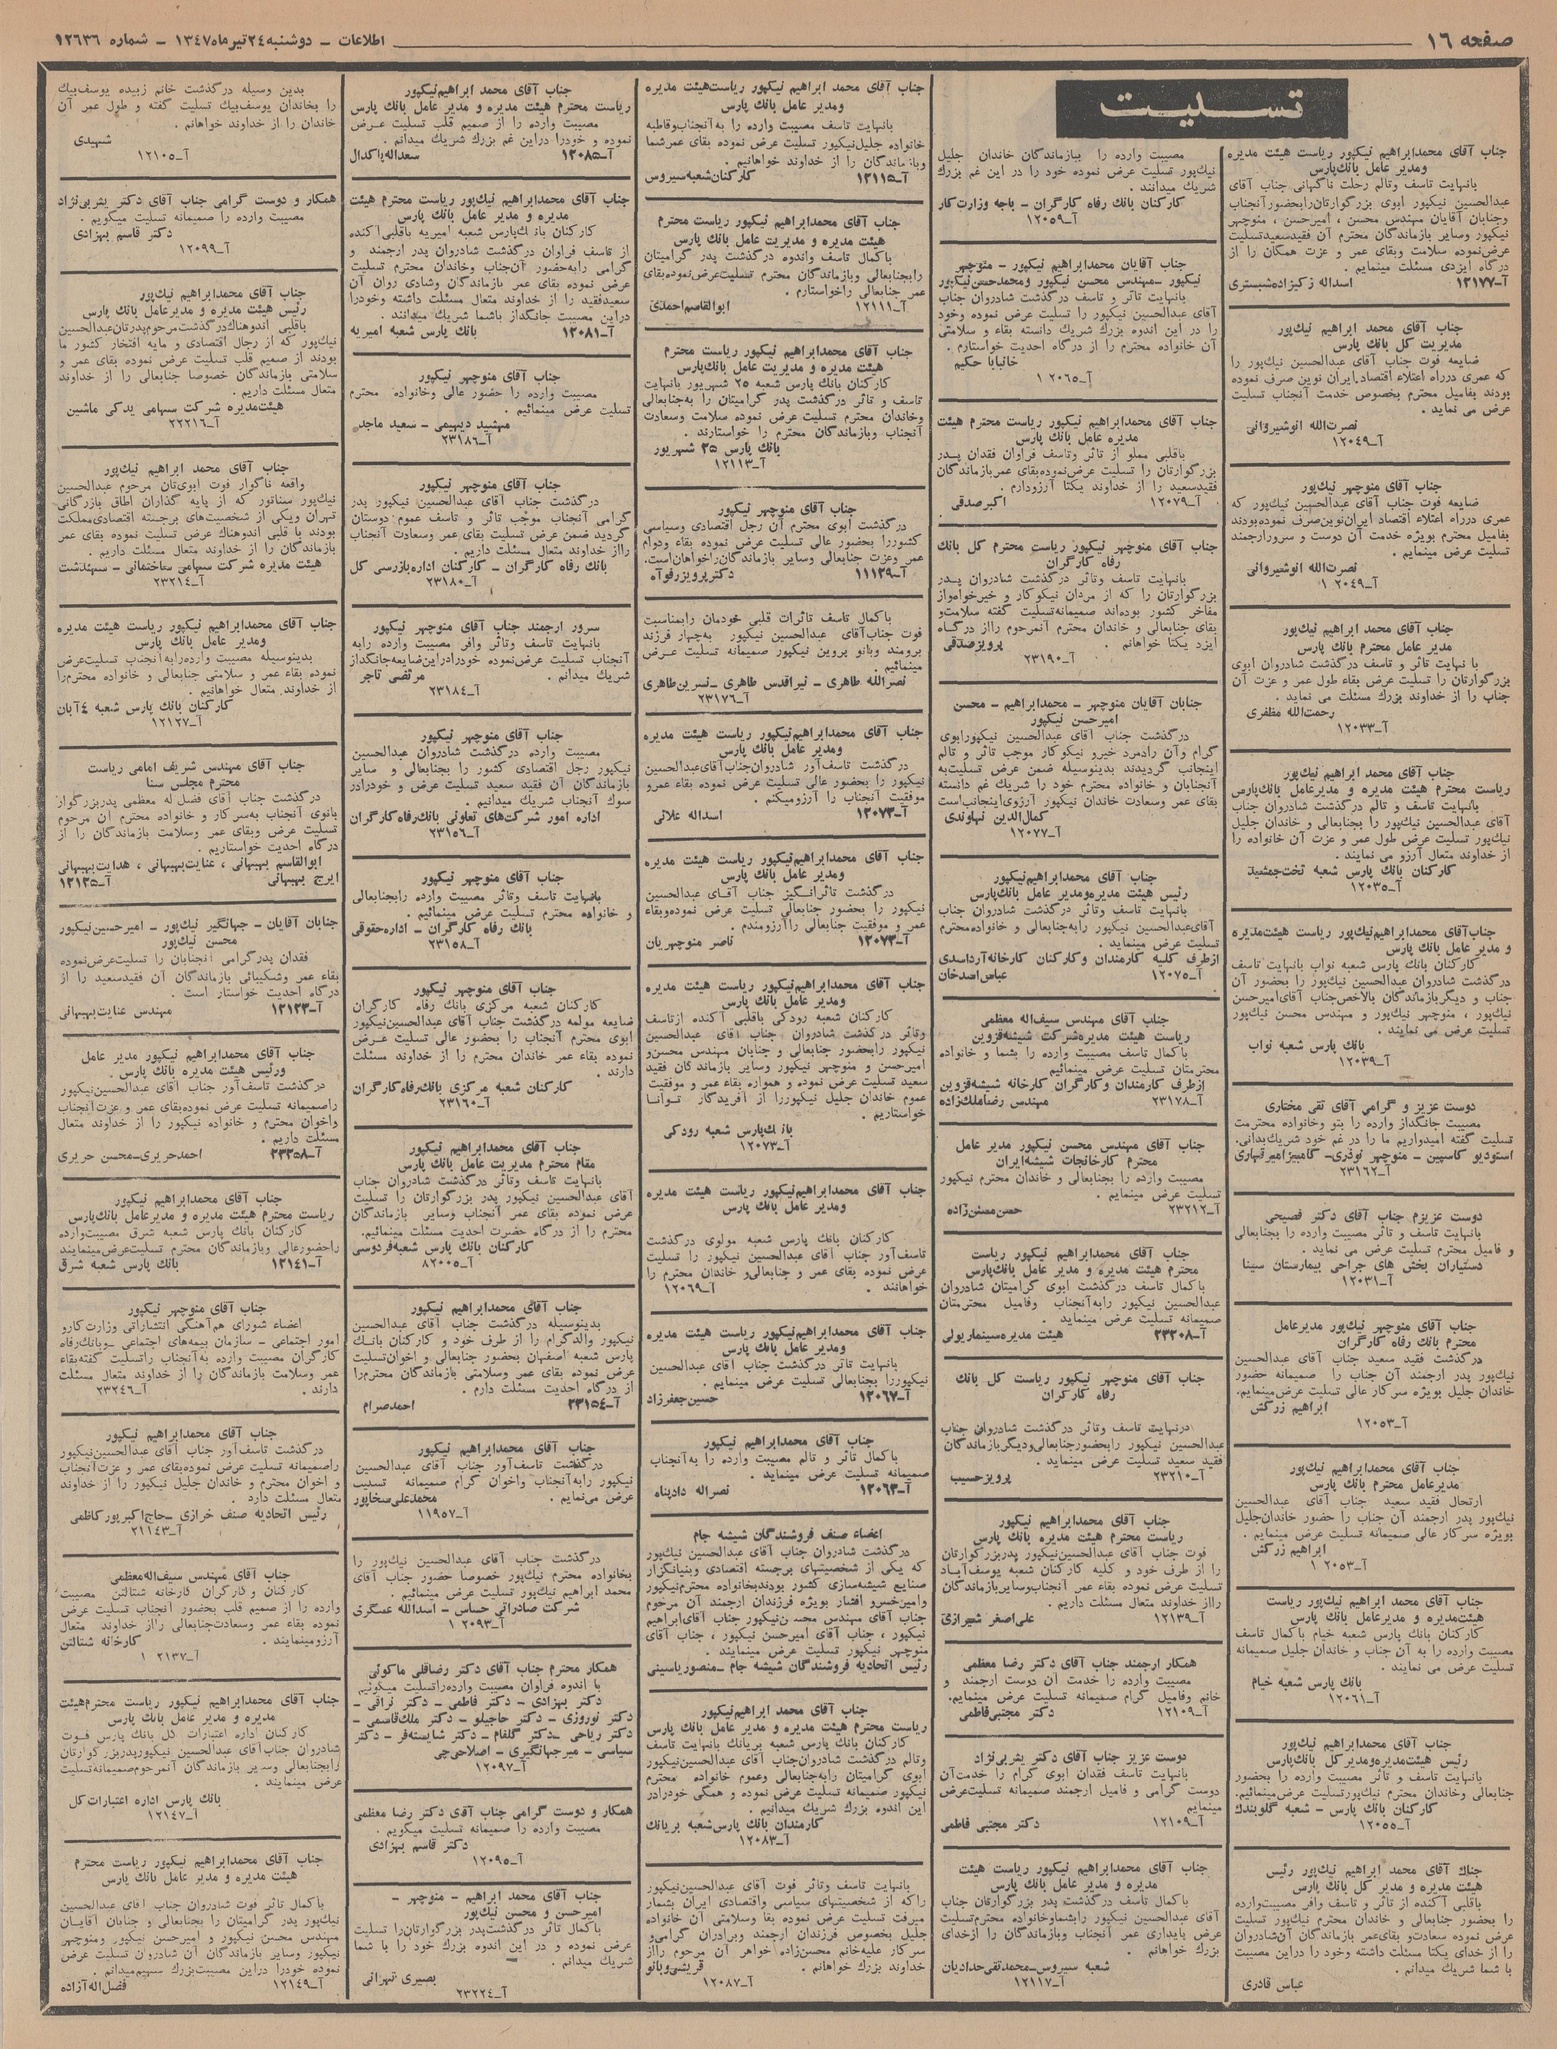 صفحه ۱۶
اطلاعات ـ دوشنبه ۲۴ تیر ماه ۱۳۴۷ ـ شماره ۱۲۶۳۶
تسلیت
جناب آقای محمدابراهیم نیکپور ریاست هیئت مدیره
ومدیر عامل بانك پارس
بانهایت تاسف وتالم رحلت ناگهانی جناب آقای
عبدالحسین نیکپور ابوی بزرگوارتان رابحضور آنجناب
وجنابان آقایان مهندس محسن ، امیرحسن ، منوچهر
نیکپور وسایر بازماندگان محترم آن فقیدسعید تسلیت
عرض نموده سلامت وبقای عمر و عزت همگان را از
درگاه ایزدی مسئلت مینمایم .
آ-۱۲۱۷۷ اسداله زکیزاده شبستری
جناب آقای محمد ابراهیم نیك‌پور
مدیریت کل بانك پارس
ضایعه فوت جناب آقای عبدالحسین نیك‌پور را
که عمری درراه اعتلاء اقتصاد ایران نوین صرف نموده
بودند بفامیل محترم بخصوص خدمت آنجناب تسلیت
عرض می نماید .
نصرت‌الله انوشیروانی
آ-۱۲۰۴۹
جناب آقای منوچهر نیك‌پور
ضایعه فوت جناب آقای عبدالحسین نیك‌پور که
عمری درراه اعتلاء اقتصاد ایران نوین صرف نموده بودند
بفامیل محترم بویژه خدمت آن دوست و سرور ارجمند
تسلیت عرض مینمایم .
نصرت‌الله انوشیروانی
آ-۱۲۰۴۹ ۱
جناب آقای محمد ابراهیم نیك‌پور
مدیر عامل محترم بانك پارس
با نهایت تاثر و تاسف درگذشت شادروان ابوی
بزرگوارتان را تسلیت عرض بقاء طول عمر و عزت آن
جناب را از خداوند بزرك مسئلت می نماید .
رحمت‌الله مظفری
آ-۱۲۰۳۳
جناب آقای محمد ابراهیم نیك‌پور
ریاست محترم هیئت مدیره و مدیرعامل بانك‌پارس
بانهایت تاسف و تالم درگذشت شادروان جناب
آقای عبدالحسین نیك‌پور را بجنابعالی و خاندان جلیل
نیك‌پور تسلیت عرض طول عمر و عزت آن خانواده را
از خداوند متعال آرزو می نمایند .
کارکنان بانك پارس شعبه تخت‌جمشید
آ-۱۲۰۳۵
جناب‌آقای محمدابراهیم‌نیك‌پور ریاست هیئت‌مدیره
و مدیر عامل بانك پارس
کارکنان بانك پارس شعبه نواب بانهایت تاسف
درگذشت شادروان عبدالحسین نیك‌پور را بحضور آن
جناب و دیگر بازماندگان بالاخص‌جناب آقای‌امیرحسن
نیك‌پور ، منوچهر نیك‌پور و مهندس محسن نیك‌پور
تسلیت عرض می نمایند .
بانك پارس شعبه نواب
آ-۱۲۰۳۹
دوست عزیز و گرامی آقای تقی مختاری
مصیبت جانگداز وارده را بتو وخانواده محترمت
تسلیت گفته امیدواریم ما را در غم خود شریك‌بدانی.
استودیو کاسپین ـ منوچهر نوذری ـ کامبیز امیرقهاری
آ-۲۳۱۶۲
دوست عزیزم جناب آقای دکتر فصیحی
بانهایت تاسف و تاثر مصیبت وارده را بجنابعالی
و فامیل محترم تسلیت عرض می نماید .
دستیاران بخش های جراحی بیمارستان سینا
آ-۱۲۰۳۱
جناب آقای منوچهر نیك‌پور مدیرعامل
محترم بانك رفاه کارگران
درگذشت فقید سعید جناب آقای عبدالحسین
نیك‌پور پدر ارجمند آن جناب را صمیمانه حضور
خاندان جلیل بویژه سرکار عالی تسلیت عرض مینمایم.
ابراهیم زرکش
آ-۱۲۰۵۳
جناب آقای محمد ابراهیم نیك‌پور
مدیرعامل محترم بانك پارس
ارتحال فقید سعید جناب آقای عبدالحسین
نیك‌پور پدر ارجمند آن جناب را حضور خاندان‌جلیل
بویژه سرکار عالی صمیمانه تسلیت عرض مینمایم .
ابراهیم زرکش
آ-۱۲۰۵۳
جناب آقای محمد ابراهیم نیك‌پور ریاست
هیئت‌مدیره و مدیرعامل بانك پارس
کارکنان بانك پارس شعبه خیام باکمال تاسف
مصیبت وارده را به آن جناب و خاندان جلیل صمیمانه
تسلیت عرض می نمایند .
بانك پارس شعبه خیام
آ-۱۲۰۶۱
جناب آقای محمدابراهیم نیك‌پور
رئیس هیئت‌مدیره‌ومدیرکل بانك‌پارس
بانهایت تاسف و تاثر مصیبت وارده را بحضور
جنابعالی وخاندان محترم نیك‌پورتسلیت‌عرض مینمائیم.
کارکنان بانك پارس ـ شعبه گلوبندك
آ-۱۲۰۵۵
جناب آقای محمد ابراهیم نیك‌پور رئیس
هیئت مدیره و مدیر کل بانك پارس
باقلبی آکنده از تاثر و تاسف وافر مصیبت‌وارده
را بحضور جنابعالی و خاندان محترم نیك‌پور تسلیت
عرض نموده سعادت‌وبقای‌عمر بازماندگان آن‌شادروان
را از خدای یکتا مسئلت داشته وخود را دراین مصیبت
با شما شریك میدانم .
عباس قادری
مصیبت وارده را ببازماندگان خاندان جلیل
نیك‌پور تسلیت عرض نموده خود را در این غم بزرك
شریك میدانند .
کارکنان بانك رفاه کارگران ـ باجه وزارت‌کار
آ-۱۲۰۵۹
جناب آقایان محمدابراهیم نیکپور ـ منوچهر
نیکپور ـ مهندس محسن نیکپور ومحمدحسن‌نیکپور
بانهایت تاثر و تاسف درگذشت شادروان جناب
آقای عبدالحسین نیکپور را تسلیت عرض نموده وخود
را در این اندوه بزرك شریك دانسته بقاء و سلامتی
آن خانواده محترم را از درگاه احدیت خواستارم .
خانبابا حکیم
آ-۱۲۰۶۵ ۱
جناب آقای محمدابراهیم نیکپور ریاست محترم هیئت
مدیره عامل بانك پارس
باقلبی مملو از تاثر وتاسف فراوان فقدان پدر
بزرگوارتان را تسلیت عرض‌نموده‌بقای عمربازماندگان
فقیدسعید را از خداوند یکتا آرزودارم .
آ-۱۲۰۷۹ اکبر صدقی
جناب آقای منوچهر نیکپور ریاست محترم کل بانك
رفاه کارگران
بانهایت تاسف وتاثر درگذشت شادروان پدر
بزرگوارتان را که از مردان نیکوکار و خیرخواه‌واز
مفاخر کشور بوده‌اند صمیمانه‌تسلیت گفته سلامت‌و
بقای جنابعالی و خاندان محترم آنمرحوم رااز درگاه
ایزد یکتا خواهانم . پرویز صدقی
آ-۲۳۱۹۰
جنابان آقایان منوچهر ـ محمدابراهیم ـ محسن
امیرحسن نیکپور
درگذشت جناب آقای عبدالحسین نیکپور ابوی
گرام وآن رادمرد خیرو نیکوکار موجب تاثر و تالم
اینجانب گردیدند بدینوسیله ضمن عرض تسلیت‌به
آنجنابان و خانواده محترم خود را شریك غم دانسته
بقای عمر وسعادت خاندان نیکپور آرزوی‌اینجانب‌است
کمال‌الدین نهاوندی
آ-۱۲۰۷۷
جناب آقای محمدابراهیم‌نیکپور
رئیس هیئت مدیره‌ومدیر عامل بانك‌پارس
بانهایت تاسف وتاثر درگذشت شادروان جناب
آقای‌عبدالحسین نیکپور رابه‌جنابعالی و خانواده محترم
تسلیت عرض مینماید .
ازطرف کلیه کارمندان وکارکنان کارخانه‌آرداسدی
آ-۱۲۰۷۵ عباس‌اصدخان
جناب آقای مهندس سیف‌اله معظمی
ریاست هیئت مدیره‌شرکت شیشه‌قزوین
باکمال تاسف مصیبت وارده را بشما و خانواده
محترمتان تسلیت عرض مینمائیم
ازطرف کارمندان وکارگران کارخانه شیشه‌قزوین
آ-۲۳۱۷۸ مهندس رضاملك‌زاده
جناب آقای مهندس محسن نیکپور مدیر عامل
محترم کارخانجات شیشه‌ایران
مصیبت وارده را بجنابعالی و خاندان محترم نیکپور
تسلیت عرض مینمایم .
آ-۲۳۲۱۲
جناب آقای محمدابراهیم نیکپور ریاست
محترم هیئت مدیره و مدیر عامل بانك‌پارس
باکمال تاسف درگذشت ابوی گرامیتان شادروان
عبدالحسین نیکپور رابه‌آنجناب وفامیل محترمتان
صمیمانه تسلیت عرض مینماید .
آ-۲۳۲۰۸ هیئت مدیره‌سینماریولی
جناب آقای منوچهر نیکپور ریاست کل بانك
رفاه کارگران
درنهایت تاسف وتاثر درگذشت شادروان جناب
عبدالحسین نیکپور رابحضورجنابعالی‌ودیگربازماندگان
فقید سعید تسلیت عرض مینماید.
آ-۲۳۲۱۰ پرویز حسیب
جناب آقای محمدابراهیم نیکپور
ریاست محترم هیئت مدیره بانك پارس
فوت جناب آقای عبدالحسین‌نیکپور پدربزرگوارتان
را از طرف خود و کلیه کارکنان شعبه یوسف‌آباد
تسلیت عرض نموده بقاء عمر آنجناب‌وسایربازماندگان
رااز خداوند متعال مسئلت داریم.
آ-۱۲۱۳۹ علی‌اصغر شیرازی
همکار ارجمند جناب آقای دکتر رضا معظمی
مصیبت وارده را خدمت آن دوست ارجمند و
خانم وفامیل گرام صمیمانه تسلیت عرض مینمایم.
آ-۱۲۱۰۹ دکتر مجتبی‌فاطمی
دوست عزیز جناب آقای دکتر یثربی‌نژاد
بانهایت تاسف فقدان ابوی گرام را خدمت‌آن
دوست گرامی و فامیل ارجمند صمیمانه تسلیت‌عرض
مینمایم
آ-۱۲۱۰۹ دکتر مجتبی فاطمی
جناب آقای محمدابراهیم نیکپور ریاست هیئت
مدیره و مدیر عامل بانك پارس
باکمال تاسف درگذشت پدر بزرگوارتان جناب
آقای عبدالحسین نیکپور رابشماوخانواده محترم‌تسلیت
عرض پایداری عمر آنجناب وبازماندگان را ازخدای
بزرك خواهانم .
شعبه سیروس ـ محمدتقی‌حدادیان
آ-۱۲۱۱۷
جناب آقای محمدابراهیم نیکپور ریاست‌هیئت مدیره
ومدیر عامل بانك پارس
بانهایت تاسف مصیبت وارده را به‌آنجناب‌وقاطبه
خانواده جلیل‌نیکپور تسلیت عرض نموده بقای عمرشما
وبازماندگان را از خداوند خواهانیم .
آ-۱۲۱۱۵ کارکنان‌شعبه‌سیروس
جناب آقای محمدابراهیم نیکپور ریاست محترم
هیئت مدیره و مدیریت عامل بانك پارس
باکمال تاسف واندوه درگذشت پدر گرامیتان
رابجنابعالی وبازماندگان محترم تسلیت‌عرض‌نموده‌بقای
عمر جنابعالی راخواستارم .
آ-۱۲۱۱۱ ابوالقاسم‌احمدی
جناب آقای محمدابراهیم نیکپور ریاست محترم
هیئت مدیره و مدیریت عامل بانك‌پارس
کارکنان بانك پارس شعبه ۲۵ شهریور بانهایت
تاسف و تاثر درگذشت پدر گرامیتان را به‌جنابعالی
وخاندان محترم تسلیت عرض نموده سلامت وسعادت
آنجناب وبازماندگان محترم را خواستارند .
بانك پارس ۲۵ شهریور
آ-۱۲۱۱۳
جناب آقای منوچهر نیکپور
درگذشت ابوی محترم آن رجل اقتصادی وسیاسی
کشوررا بحضور عالی تسلیت عرض نموده بقاء ودوام
عمر وعزت جنابعالی و سایر بازماندگان‌راخواهان‌است.
آ-۱۱۱۳۹ دکترپرویزرفوآه
باکمال تاسف تاثرات قلبی خودمان رابمناسبت
فوت جناب‌آقای عبدالحسین نیکپور به‌چهار فرزند
برومند وبانو پروین نیکپور صمیمانه تسلیت عرض
مینمائیم .
نصرالله طاهری ـ نیراقدس طاهری ـ نسرین‌طاهری
آ-۲۳۱۷۶
جناب آقای محمدابراهیم‌نیکپور ریاست هیئت مدیره
ومدیر عامل بانك پارس
درگذشت تاسف‌آور شادروان‌جناب‌آقای‌عبدالحسین
نیکپور را بحضور عالی تسلیت عرض نموده بقاء عمرو
موفقیت آنجناب را آرزومیکنم .
آ-۱۲۰۷۳ اسداله علائی
جناب آقای محمدابراهیم‌نیکپور ریاست هیئت مدیره
ومدیر عامل بانك پارس
درگذشت تاثرانگیز جناب آقای عبدالحسین
نیکپور را بحضور جنابعالی تسلیت عرض نموده‌وبقاء
عمر و موفقیت جنابعالی راآرزومندم .
آ-۱۲۰۷۳ ناصر منوچهریان
جناب آقای محمدابراهیم‌نیکپور ریاست هیئت مدیره
ومدیر عامل بانك پارس
کارکنان شعبه رودکی باقلبی آکنده ازتاسف
وتاثر درگذشت شادروان جناب آقای عبدالحسین
نیکپور رابحضور جنابعالی و جنابان مهندس محسن‌و
امیرحسن و منوچهر نیکپور وسایر بازماندگان فقید
سعید تسلیت عرض نموده و همواره بقاء عمر و موفقیت
عموم خاندان جلیل نیکپوررا از آفریدگار توانا
خواستاریم .
بانك‌پارس شعبه رودکی
آ-۱۲۰۷۳
جناب آقای محمدابراهیم‌نیکپور ریاست هیئت مدیره
ومدیر عامل بانك پارس
کارکنان بانك پارس شعبه مولوی درگذشت
تاسف‌آور جناب آقای عبدالحسین نیکپور را تسلیت
عرض نموده بقای عمر و جنابعالی‌وخاندان محترم را
خواهانند . آ-۱۲۰۶۹
جناب آقای محمدابراهیم‌نیکپور ریاست هیئت مدیره
ومدیر عامل بانك پارس
بانهایت تاثر درگذشت جناب آقای عبدالحسین
نیکپوررا بجنابعالی تسلیت عرض مینمایم.
آ-۱۲۰۶۷ حسین‌جعفرزاد
جناب آقای محمدابراهیم نیکپور
باکمال تاثر و تالم مصیبت وارده را به‌آنجناب
صمیمانه تسلیت عرض مینماید .
آ-۱۲۰۶۳ نصراله دادپناه
اعضاء صنف فروشندگان شیشه جام
درگذشت شادروان جناب آقای عبدالحسین نیکپور
که یکی از شخصیتهای برجسته اقتصادی وبنیانگزار
صنایع شیشه‌سازی کشور بودندبخانواده محترم‌نیکپور
وامیرخسرو افشار بویژه فرزندان ارجمند آن مرحوم
جناب آقای مهندس محسن‌نیکپور جناب آقای‌ابراهیم
نیکپور ، جناب آقای امیرحسن نیکپور ، جناب آقای
منوچهر نیکپور تسلیت عرض مینمایند .
رئیس اتحادیه فروشندگان شیشه جام ـ منصوریاسینی
جناب آقای محمد ابراهیم‌نیکپور
ریاست محترم هیئت مدیره و مدیر عامل بانك پارس
کارکنان بانك پارس شعبه بریانك بانهایت تاسف
وتالم درگذشت شادروان‌جناب آقای عبدالحسین‌نیکپور
ابوی گرامیتان رابه‌جنابعالی وعموم خانواده محترم
نیکپور صمیمانه تسلیت عرض نموده و همگی خودرادر
این اندوه بزرك شریك میدانیم .
کارمندان بانك پارس‌شعبه بریانك
آ-۱۲۰۸۳
بانهایت تاسف وتاثر فوت آقای عبدالحسین‌نیکپور
راکه از شخصیتهای سیاسی واقتصادی ایران بشمار
میرفت تسلیت عرض نموده بقا وسلامتی آن خانواده
جلیل بخصوص فرزندان ارجمند وبرادران گرامی‌و
سرکار علیه‌خانم محسن‌زاده خواهر آن مرحوم رااز
خداوند بزرك خواهانم . قریشی‌وبانو
آ-۱۲۰۸۷
جناب آقای محمد ابراهیم‌نیکپور
ریاست محترم هیئت مدیره و مدیر عامل بانك پارس
مصیبت وارده را از صمیم قلب تسلیت عرض
نموده و خودرا دراین غم بزرك شریك میدانم .
آ-۱۲۰۸۵ سعداله‌پاکدال
جناب آقای محمدابراهیم نیك‌پور ریاست محترم هیئت
مدیره و مدیر عامل بانك پارس
کارکنان بانك‌پارس شعبه امیریه باقلبی‌آکنده
از تاسف فراوان درگذشت شادروان پدر ارجمند و
گرامی رابه‌حضور آن‌جناب وخاندان محترم تسلیت
عرض نموده بقای عمر بازماندگان وشادی روان آن
سعیدفقید را از خداوند متعال مسئلت داشته وخودرا
دراین مصیبت جانگداز باشما شریك میدانند .
آ-۱۲۰۸۱ بانك پارس شعبه امیریه
جناب آقای منوچهر نیکپور
مصیبت وارده را حضور عالی وخانواده محترم
تسلیت عرض مینمائیم .
مهشید دیهیمی ـ سعید ماجد
آ-۲۳۱۸۶
جناب آقای منوچهر نیکپور
درگذشت جناب آقای عبدالحسین نیکپور پدر
گرامی آنجناب موجب تاثر و تاسف عموم دوستان
گردید ضمن عرض تسلیت بقای عمر وسعادت آنجناب
رااز خداوند متعال مسئلت داریم .
بانك رفاه کارگران ـ کارکنان اداره‌بازرسی کل
آ-۲۳۱۸۰
سرور ارجمند جناب آقای منوچهر نیکپور
بانهایت تاسف وتاثر وافر مصیبت وارده رابه
آنجناب تسلیت عرض‌نموده خودرادراین‌ضایعه‌جانگداز
شریك میدانم . مرتضی تاجر
آ-۲۳۱۸۴
جناب آقای منوچهر نیکپور
مصیبت وارده درگذشت شادروان عبدالحسین
نیکپور رجل اقتصادی کشور را بجنابعالی و سایر
بازماندگان آن فقید سعید تسلیت عرض و خودرادر
سوك آنجناب شریك میدانیم .
اداره امور شرکت‌های تعاونی بانك‌رفاه‌کارگران
آ-۲۳۱۵۶
جناب آقای منوچهر نیکپور
بانهایت تاسف وتاثر مصیبت وارده رابجنابعالی
و خانواده محترم تسلیت عرض مینمائیم .
بانك رفاه کارگران ـ اداره‌حقوقی
آ-۲۳۱۵۸
جناب آقای منوچهر نیکپور
کارکنان شعبه مرکزی بانك رفاه کارگران
ضایعه مولمه درگذشت جناب آقای عبدالحسین‌نیکپور
ابوی محترم آنجناب را بحضور عالی تسلیت عرض
نموده بقاء عمر خاندان محترم را از خداوند مسئلت
دارند .
کارکنان شعبه مرکزی بانك‌رفاه‌کارگران
آ-۲۳۱۶۰
جناب آقای محمدابراهیم نیکپور
مقام محترم مدیریت عامل بانك پارس
بانهایت تاسف وتاثر درگذشت شادروان جناب
آقای عبدالحسین نیکپور پدر بزرگوارتان را تسلیت
عرض نموده بقای عمر آنجناب وسایر بازماندگان
محترم را از درگاه حضرت احدیت مسئلت مینمائیم.
کارکنان بانك پارس شعبه‌فردوسی
آ-۸۲۰۰۵
جناب آقای محمدابراهیم نیکپور
بدینوسیله درگذشت جناب آقای عبدالحسین
نیکپور والدگرام را از طرف خود و کارکنان بانك
پارس شعبه اصفهان بحضور جنابعالی و اخوان‌تسلیت
عرض نموده بقای عمر وسلامتی بازماندگان محترم‌را
از درگاه احدیت مسئلت دارم .
آ-۲۳۱۵۴ احمدصرام
جناب آقای محمدابراهیم نیکپور
درگذشت تاسف‌آور جناب آقای عبدالحسین
نیکپور رابه‌آنجناب واخوان گرام صمیمانه تسلیت
عرض می‌نمایم . محمدعلی‌سخاپور
آ-۱۱۹۵۷
درگذشت جناب آقای عبدالحسین نیك‌پور را
بخانواده محترم نیك‌پور خصوصا حضور جناب آقای
محمد ابراهیم نیك‌پور تسلیت عرض مینمائیم .
شرکت صادراتی حساس ـ اسدالله عسگری
آ-۱۲۰۹۳ ۱
همکار محترم جناب آقای دکتر رضاقلی ماکوئی
با اندوه فراوان مصیبت وارده‌راتسلیت میگوئیم
دکتر بهزادی ـ دکتر فاطمی ـ دکتر نراقی ـ
دکتر نوروزی ـ دکتر حاجیلو ـ دکتر ملك‌قاسمی ـ
دکتر ریاحی ـ دکتر گلفام ـ دکتر شایسته‌فر ـ دکتر
سیاسی ـ میرجهانگیری ـ اصلاحی‌چی
آ-۱۲۰۹۷
همکار و دوست گرامی جناب آقای دکتر رضا معظمی
مصیبت وارده را صمیمانه تسلیت میگویم .
دکتر قاسم بهزادی
آ-۱۲۰۹۵
جناب آقای محمد ابراهیم ـ منوچهر ـ
امیرحسن و محسن نیك‌پور
باکمال تاثر درگذشت‌پدر بزرگوارتان‌را تسلیت
عرض نموده و در این اندوه بزرك خود را با شما
شریك میدانم .
بصیری تهرانی
آ-۲۳۲۲۴
بدین وسیله درگذشت خانم زبیده یوسف‌بیك
را بخاندان یوسف‌بیك تسلیت گفته و طول عمر آن
خاندان را از خداوند خواهانم .
شهیدی
آ-۱۲۱۰۵
همکار و دوست گرامی جناب آقای دکتر یثربی‌نژاد
مصیبت وارده را صمیمانه تسلیت میگویم .
دکتر قاسم بهزادی
آ-۱۲۰۹۹
جناب آقای محمدابراهیم نیك‌پور
رئیس هیئت مدیره و مدیرعامل بانك پارس
باقلبی اندوهناك‌درگذشت‌مرحوم‌پدرتان‌عبدالحسین
نیك‌پور که از رجال اقتصادی و مایه افتخار کشور ما
بودند از صمیم قلب تسلیت عرض نموده بقای عمر و
سلامتی بازماندگان خصوصا جنابعالی را از خداوند
متعال مسئلت داریم .
هیئت‌مدیره شرکت سهامی یدکی ماشین
آ-۲۲۲۱۶
جناب آقای محمد ابراهیم نیك‌پور
واقعه ناگوار فوت ابوی‌تان مرحوم عبدالحسین
نیك‌پور سناتور که از پایه گذاران اطاق بازرگانی
تهران ویکی از شخصیت‌های برجسته اقتصادی‌مملکت
بودند با قلبی اندوهناك عرض تسلیت نموده بقای عمر
بازماندگان را از خداوند متعال مسئلت داریم .
هیئت مدیره شرکت سهامی ساختمانی ـ سهندشت
آ-۲۳۲۱۴
جناب آقای محمدابراهیم نیکپور ریاست هیئت مدیره
ومدیر عامل بانك پارس
بدینوسیله مصیبت وارده‌رابه‌آنجناب تسلیت‌عرض
نموده بقاء عمر و سلامتی جنابعالی و خانواده محترم‌را
از خداوند متعال خواهانیم .
کارکنان بانك پارس شعبه ۴آبان
آ-۱۲۱۲۷
جناب آقای مهندس شریف امامی ریاست
محترم مجلس سنا
درگذشت جناب آقای فضل‌له معظمی پدربزرگوار
بانوی آنجناب به‌سرکار و خانواده محترم آن مرحوم
تسلیت عرض وبقای عمر وسلامت بازماندگان را از
درگاه احدیت خواستاریم .
ابوالقاسم بهبهانی ، عنایت‌بهبهانی ، هدایت‌بهبهانی
ایرج بهبهانی آ-۱۲۱۲۵
جنابان آقایان ـ جهانگیر نیك‌پور ـ امیرحسین‌نیکپور
محسن نیك‌پور
فقدان پدرگرامی آنجنابان را تسلیت‌عرض‌نموده
بقاء عمر وشکیبائی بازماندگان آن فقیدسعید را از
درگاه احدیت خواستار است .
آ-۱۲۱۲۳ مهندس عنایت‌بهبهانی
جناب آقای محمدابراهیم نیکپور مدیر عامل
ورئیس هیئت مدیره بانك پارس
درگذشت تاسف‌آور جناب آقای عبدالحسین‌نیکپور
راصمیمانه تسلیت عرض نموده‌بقای عمر و عزت‌آنجناب
واخوان محترم و خانواده نیکپور را از خداوند متعال
مسئلت داریم .
آ-۲۳۲۵۸ احمدحریری ـ محسن حریری
جناب آقای محمدابراهیم نیکپور
ریاست محترم هیئت مدیره و مدیرعامل بانك‌پارس
کارکنان بانك پارس شعبه شرق مصیبت‌وارده
راحضورعالی وبازماندگان محترم تسلیت‌عرض‌مینمایند
آ-۱۲۱۴۱ بانك پارس شعبه شرق
جناب آقای منوچهر نیکپور
اعضاء شورای هم‌آهنگی انتشاراتی وزارت‌کارو
امور اجتماعی ـ سازمان بیمه‌های اجتماعی ـ وبانك‌رفاه
کارگران مصیبت وارده به‌آنجناب راتسلیت گفته‌بقاء
عمر وسلامت بازماندگان را از خداوند متعال مسئلت
دارند . آ-۲۳۲۴۶
جناب آقای محمدابراهیم نیکپور
درگذشت تاسف‌آور جناب آقای عبدالحسین‌نیکپور
راصمیمانه تسلیت عرض نموده‌بقای عمر و عزت‌آنجناب
و اخوان محترم و خاندان جلیل نیکپور را از خداوند
متعال مسئلت دارد .
رئیس اتحادیه صنف خرازی ـ حاج‌اکبرپورکاظمی
آ-۲۱۱۴۳
جناب آقای مهندس سیف‌اله‌معظمی
کارکنان وکارگران کارخانه شتالتن مصیبت
وارده را از صمیم قلب بحضور آنجناب تسلیت عرض
نموده بقاء عمر وسعادت‌جنابعالی رااز خداوند متعال
آرزومینمایند . کارخانه شتالتن
آ-۱۲۱۳۷
جناب آقای محمدابراهیم نیکپور ریاست محترم‌هیئت
مدیره و مدیر عامل بانك پارس
کارکنان اداره اعتبارات کل بانك پارس فوت
شادروان جناب‌آقای عبدالحسین نیکپورپدربزرگوارتان
رابجنابعالی وسایر بازماندگان آنمرحوم‌صمیمانه‌تسلیت
عرض مینمایند .
بانك پارس اداره اعتبارات‌کل
آ-۱۲۱۴۷
جناب آقای محمدابراهیم نیکپور ریاست محترم
هیئت مدیره و مدیر عامل بانك پارس
باکمال تاثر فوت شادروان جناب آقای عبدالحسین
نیك‌پور پدر گرامیتان را بجنابعالی و جنابان آقایان
مهندس محسن نیکپور و امیرحسن نیکپور ومنوچهر
نیکپور وسایر بازماندگان آن شادروان تسلیت عرض
نموده خودرا دراین مصیبت‌بزرك سهیم‌میدانم .
آ-۱۲۱۴۹ فضل‌اله‌آزاده